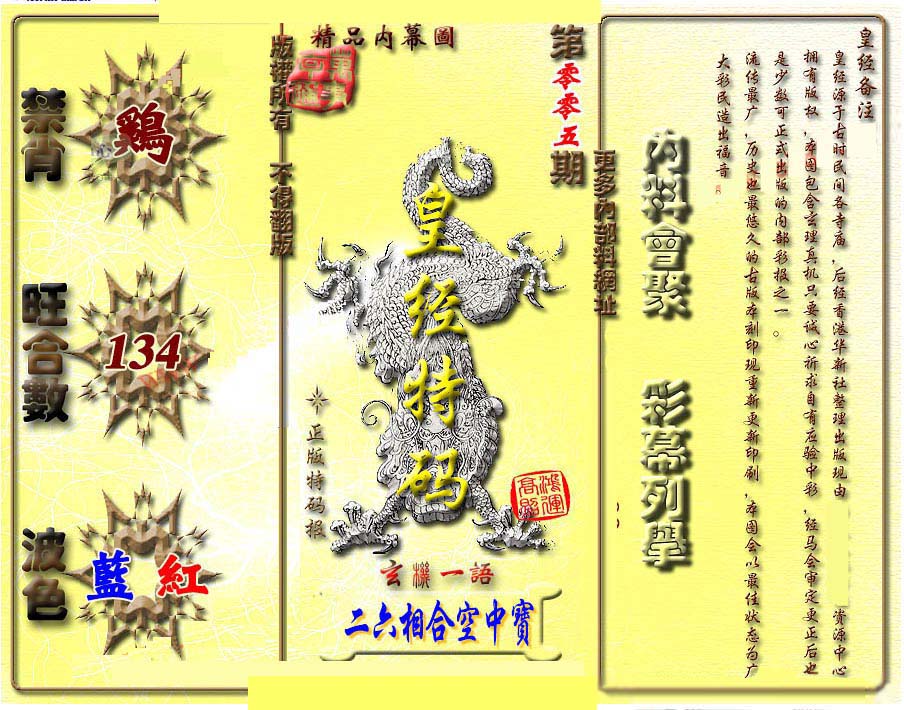 禁肖
鷄
旺合數
134
波色
藍 紅
版權所有 不得翻版
精品内幕圖
第零零五期
皇经特码
正版特码报
鴻運高照
玄機一語
二六相合空中寶
更多内部料網址
内料會聚 彩幕列舉
皇经备注
皇经源于古时民间各寺庙,后经香港华新社整理出版现由 资源中心
拥有版权,本图包含玄理真机只要诚心祈求自有应验中彩,经马会审定更正后也
是少数可正式出版的内部彩报之一。
流传最广,历史也最悠久的古版本刻印现重新更新印刷,本图会以最佳状态为广
大彩民造出福音